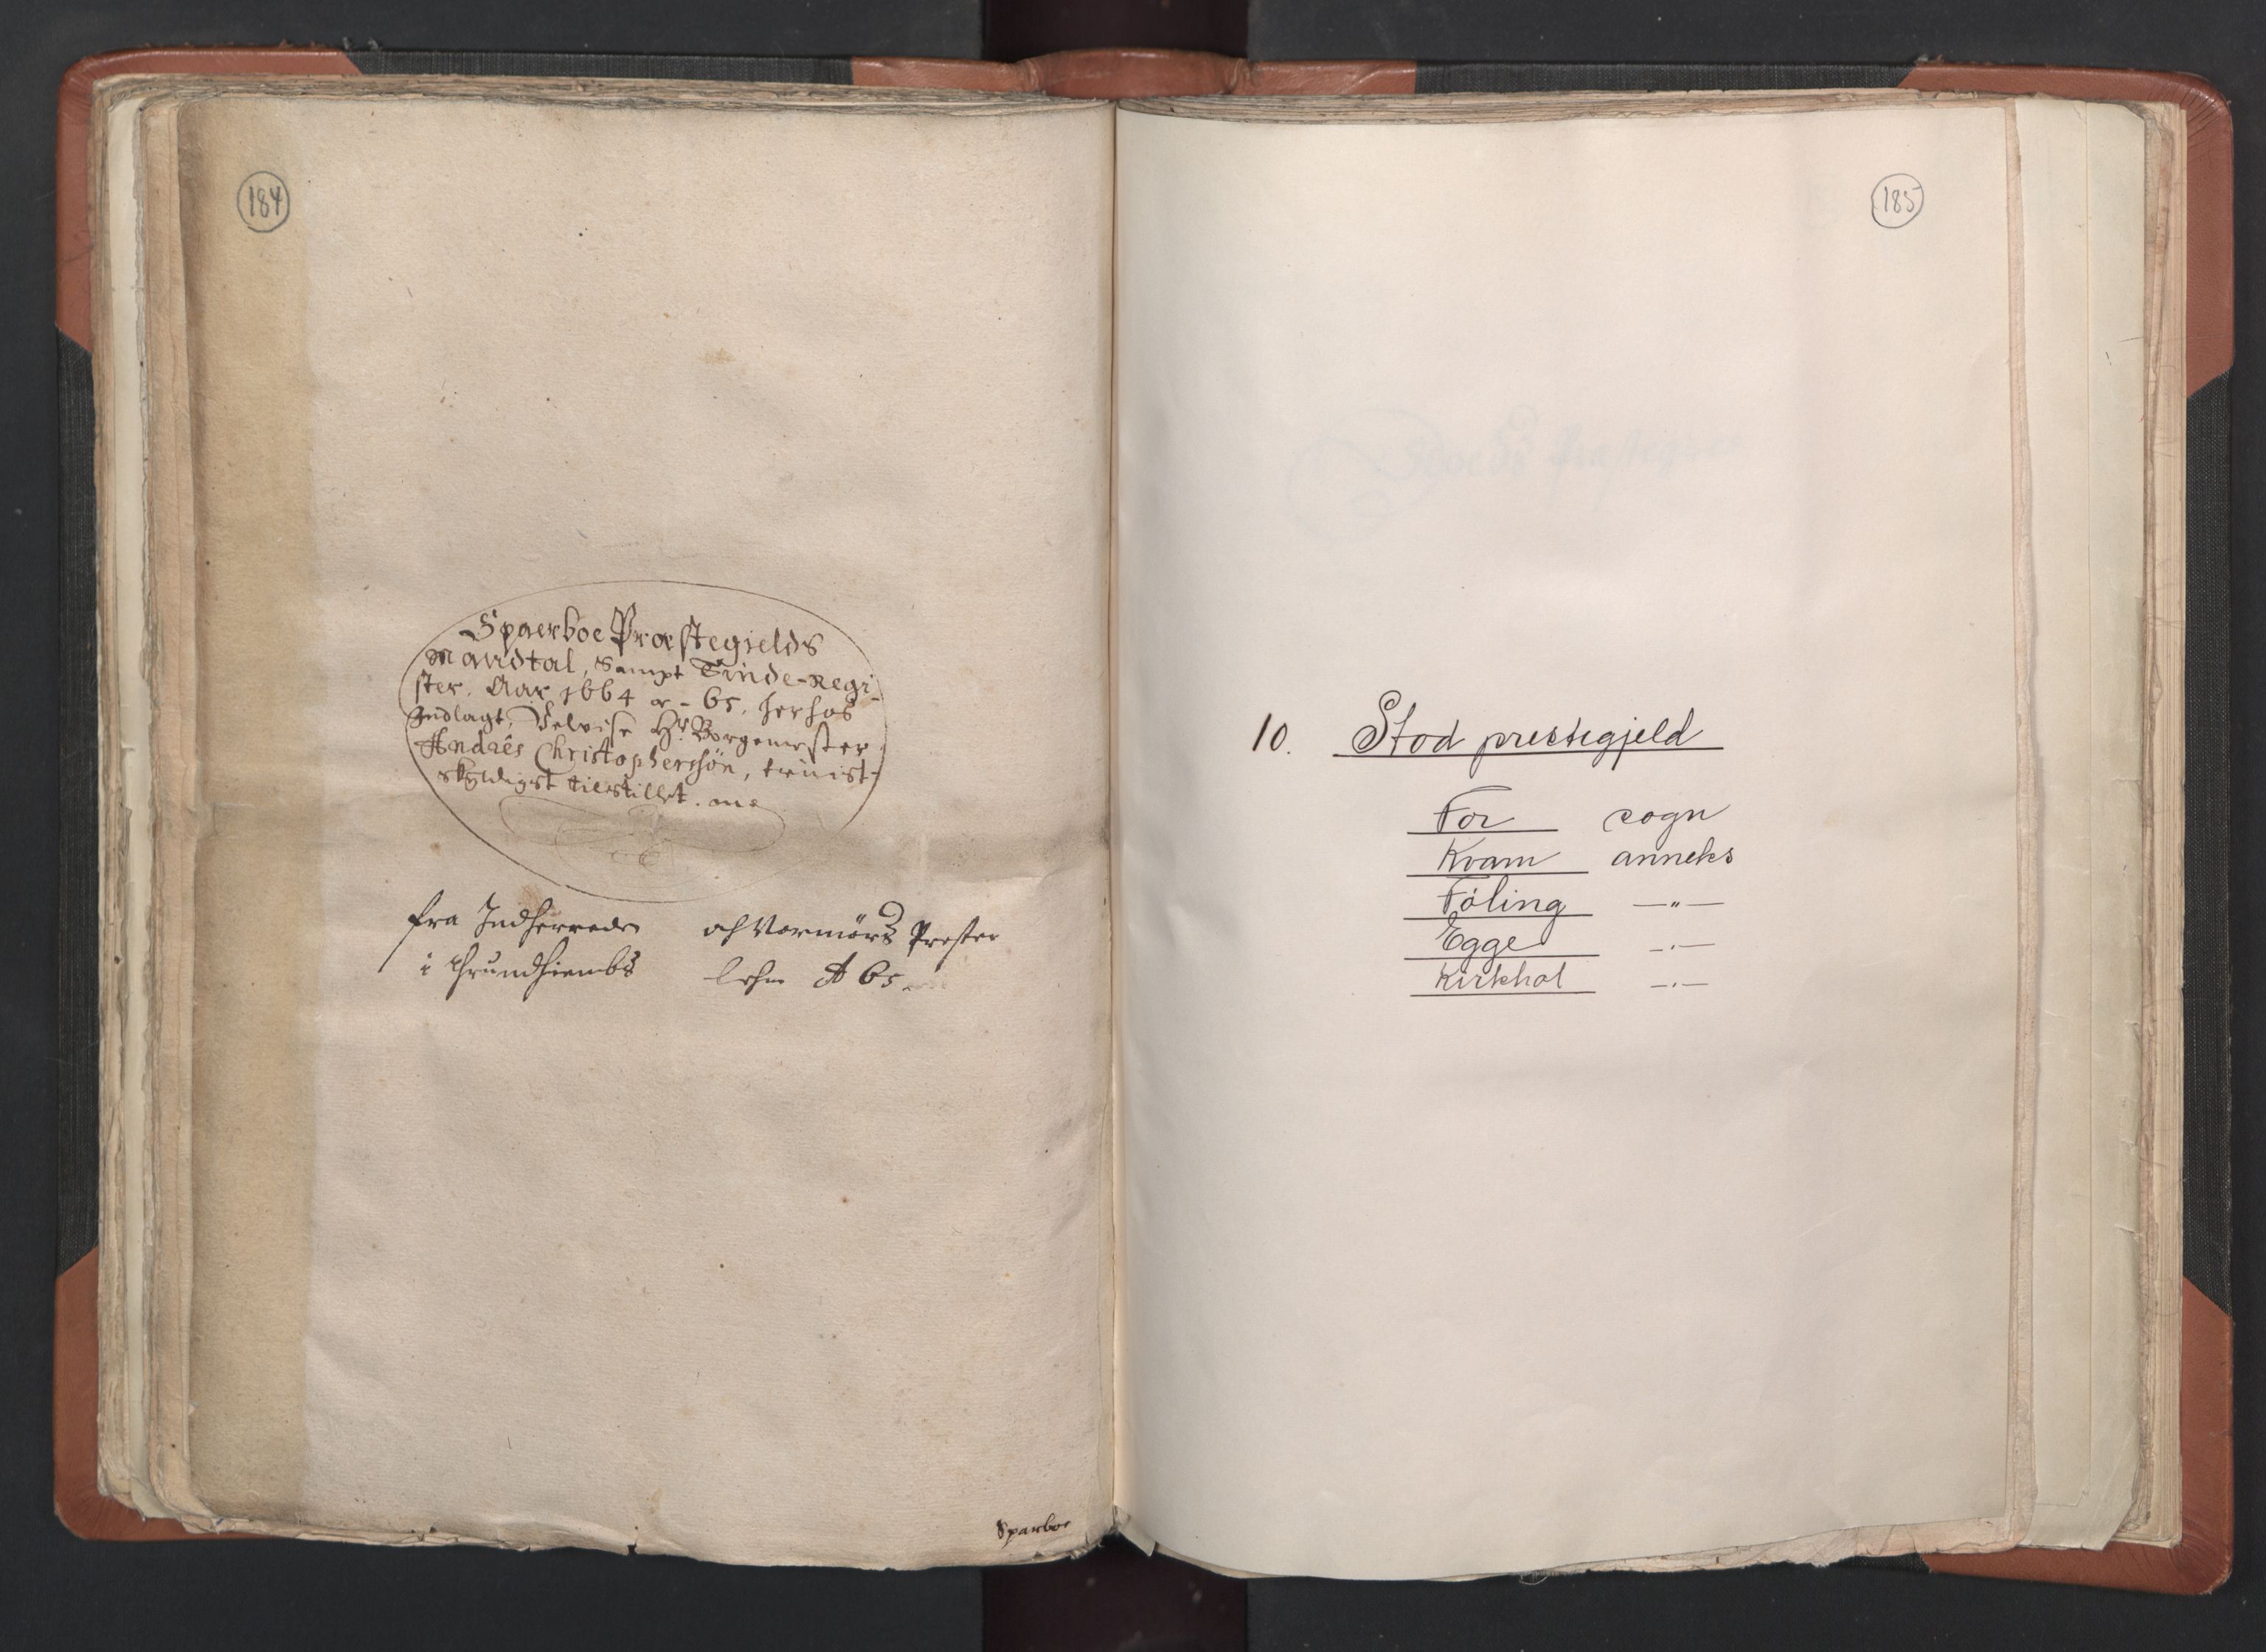 184
Sparboe Præstegields
Mandtal, Sampt Tiinde-Regi-
ster. Aar 1664 or - 65. herhos
Indlagt, Velvise Hr. Borgemester
Andaēs Christophersøn, tienist-
skyldigst tilestillet.
fra Indherreds och Værmørs Prester
i Thrundhiembs lehn A 65.
Sparboe
185
10. Stod prestegjeld
For sogn
Kvam anneks
Føling —"—
Egge —"—
Kirkhol —"—